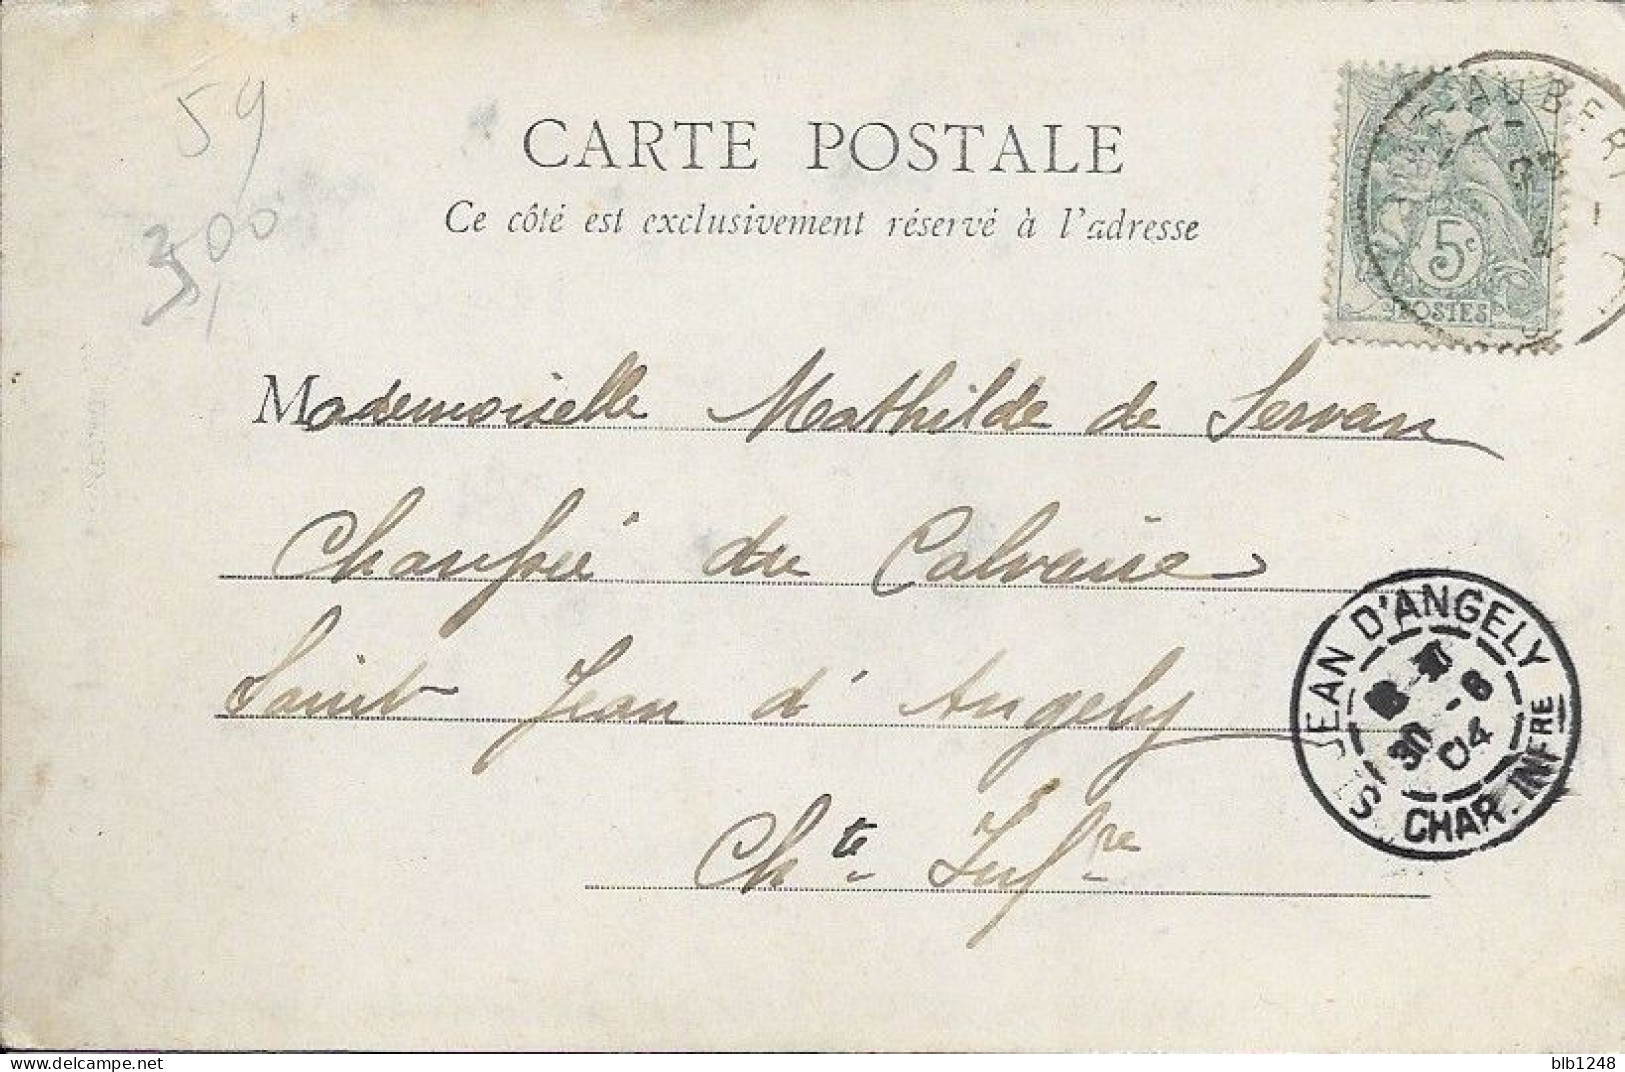 59
CARTE POSTALE
Ce côté est exclusivement réservé à l'adresse
AUBER
5c
POSTES
Mademoiselle Mathilde de Servan
du Calvaire
Saint Jean d'Angely
Chte Infre
ST JEAN D'ANGELY
30 -8
04
CHAR. INFRE
blb1248